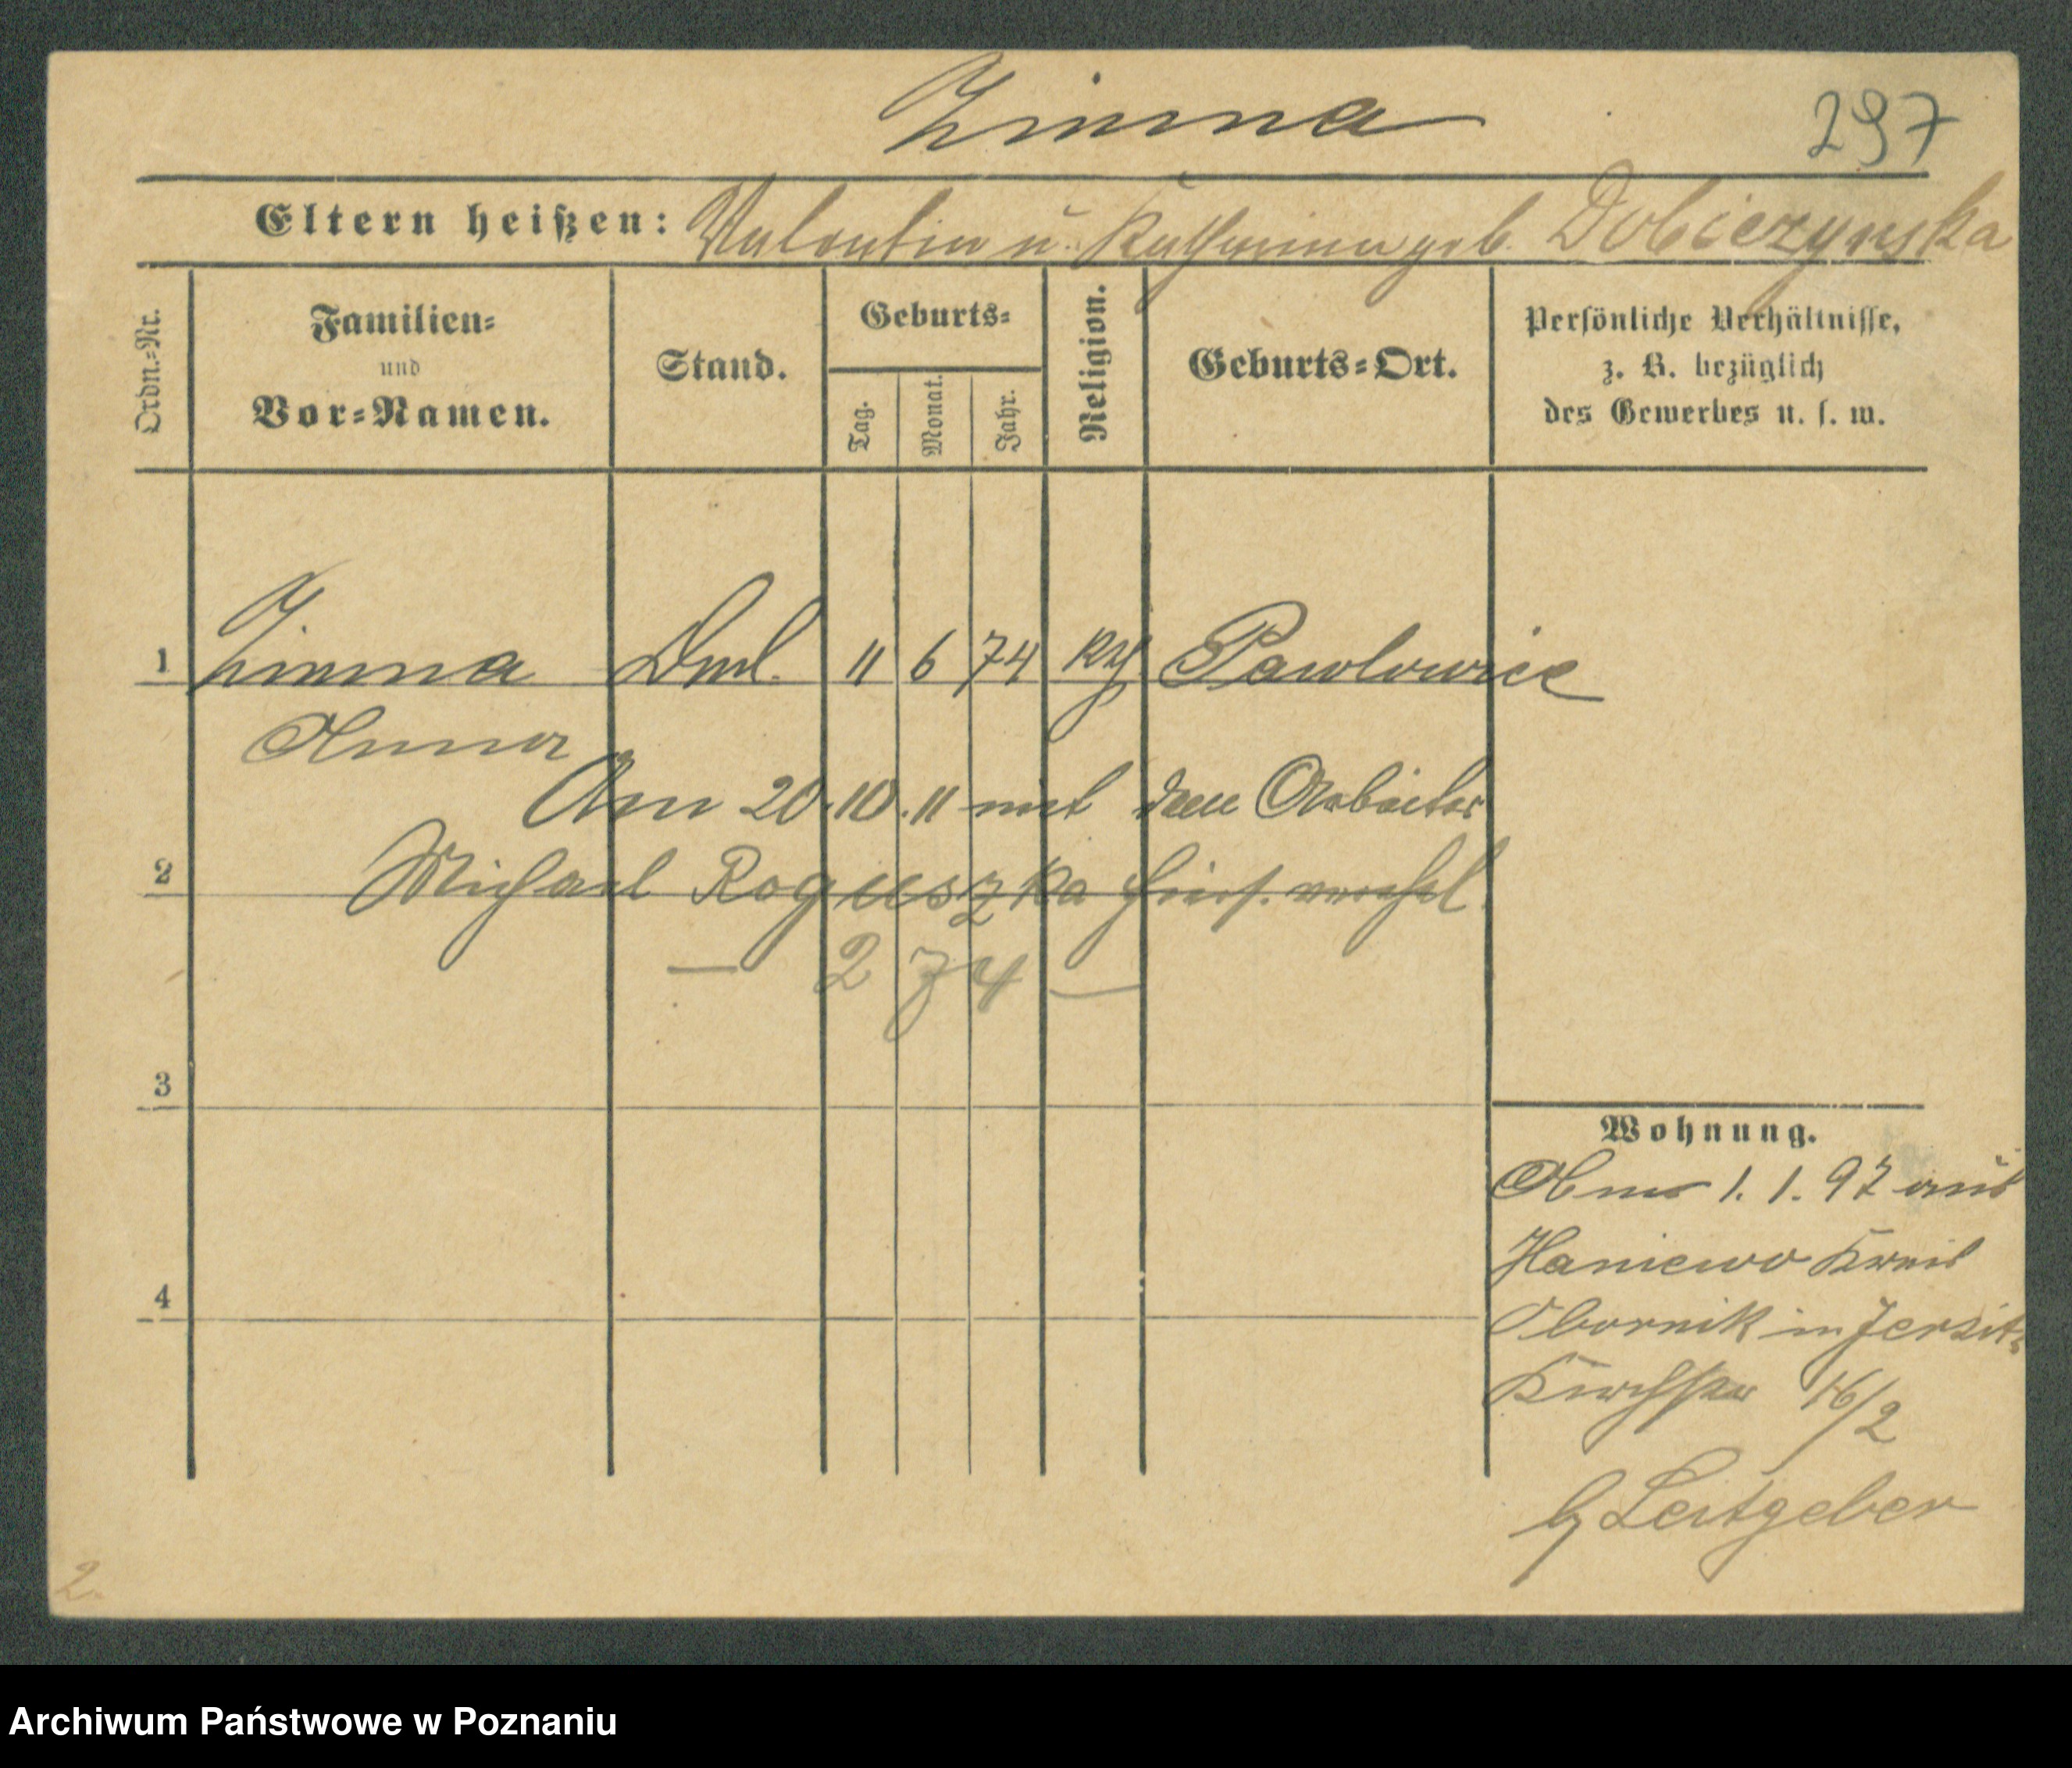 Zimna
297
Eltern heißen: Valentin u. Katharina geb. Dobiezynska
Ordn.=Nr.
Familien=
und
Vor=Namen.
Stand.
Geburts=
Tag.
Monat.
Jahr.
Religion.
Geburts=Ort.
Persönliche Verhältnisse,
z. B. bezüglich
des Gewerbes u. s. w.
1 Zimna 11 6 74 Pawlowice
Anna
Am 20.10.11 mit dem Arbeiter
2 Michael Roguszka hiers. verehel.
— 274 —
3
4
Wohnung.
1. 1. 97 aus
Haniewo Kreis
Obornik in Jersitz
Kirchstr 46/2
b/ Leitgeber
2
Archiwum Państwowe w Poznaniu